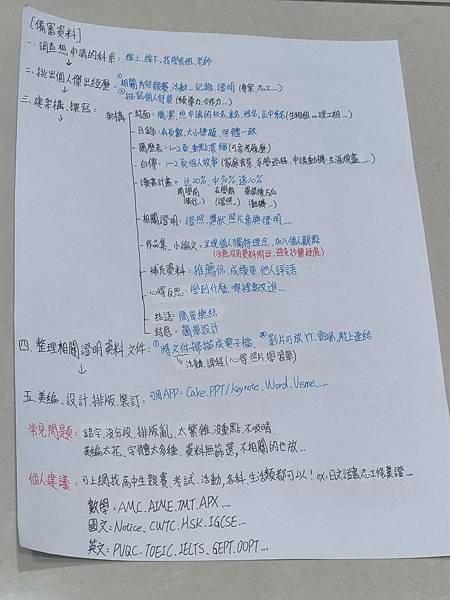 [備審資料]
一、調查想申請的科系：線上、線下、找學長姐、老師
二、挑出個人傑出經歷：①相關內容競賽、活動、記錄、證明(專案、志工...)
②描寫個人特質(領導力、合作力...)
三、建架構、撰寫：
架構
封面：簡潔、想申請的校名、系名、姓名、高中系名(生物組or理工組...)
目錄：有頁數、大小標題、字體一致
簡歷表：1~2頁、重點表縮(可當考履歷)
自傳：1~2頁個人故事(家庭背景、求學過程、申請動機、生涯規畫......)
讀書計畫：近20%、中70%、遠10%
開學前 在學前 畢業後方向
(語言...) (證照...) (動機...)
相關證明：證照、獎狀、照片、參與證明......
作品集、小論文：呈現個人獨特理念、加入個人觀點
(注意引用資料附註，避免抄襲疑慮)
補充資料：推薦信、成績單、他人評語
心得反思：學到什麼、哪裡要改進...
結語：簡單總結
封底：簡單設計
四、整理相關證明資料、文件：①將文件掃描成電子檔、②影片可放YT、雲端，貼上連結
活動、課程(心得、照片、學習單)
五、美編、設計、排版、裝訂：可用APP：Cake、PPT/Keynote、Word、Visme......
常見問題：錯字、沒分段、排版亂、太繁雜、沒重點、不吸睛
美編太花、字體太多種、資料無篩選，不相關的也放...
個人建議：可上網找高中生競賽、考試、活動，各科、生活類都可以！ex：日文證書、志工修業證...
數學：AMC、AIME、TMT、APX...
國文：Notice、CWTC、HSK、IGCSE...
英文：PUQC、TOEIC、IELTS、GEPT、OOPT...